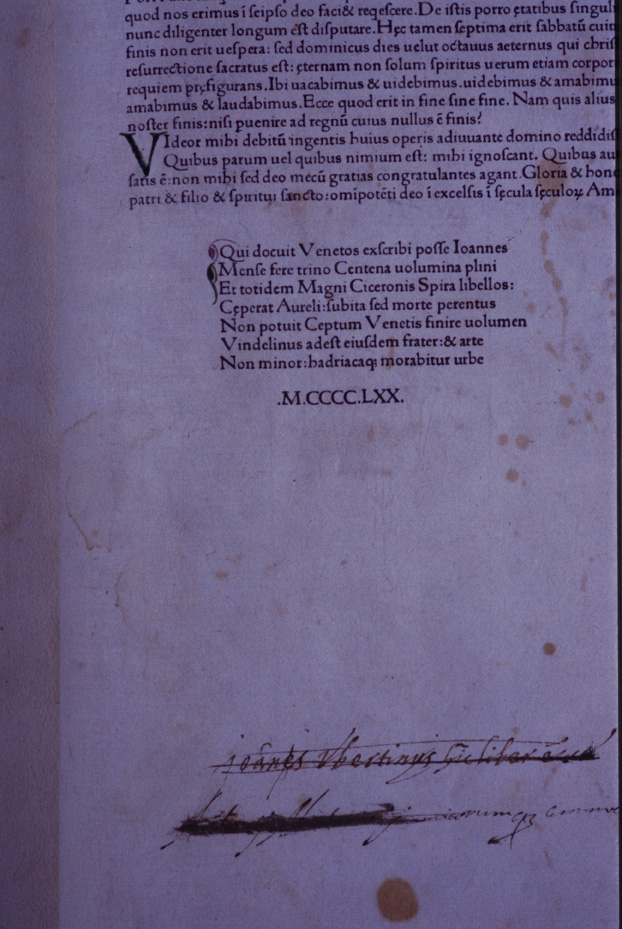 quod nos erimus ī seipso deo faci& reqescere. De istis porro ętatibus singul
nunc diligenter longum est disputare. Hęc tamen septima erit sabbatū cuiu
finis non erit uespera: sed dominicus dies uelut octauus aeternus qui chris
resurrectione sacratus est: ęternam non solum spiritus uerum etiam corpor
requiem pręfigurans. Ibi uacabimus & uidebimus. uidebimus & amabimu
amabimus & laudabimus. Ecce quod erit in fine sine fine. Nam quis alius
noster finis: nisi puenire ad regnū cuius nullus ē finis?
VIdeor mihi debitū ingentis huius operis adiuuante domino reddidis
Quibus parum uel quibus nimium est: mihi ignoscant. Quibus au
satis ē: non mihi sed deo mecū gratias congratulantes agant. Gloria & hono
patri & filio & spiritui sancto: omīpotēti deo ī excelsis ī sęcula sęculoꝝ Am
Qui docuit Venetos exscribi posse Ioannes
Mense fere trino Centena uolumina plini
Et totidem Magni Ciceronis Spira libellos:
Cęperat Aureli: subita sed morte perentus
Non potuit Ceptum Venetis finire uolumen
Vindelinus adest eiusdem frater: & arte
Non minor: hadriacaqꝫ morabitur urbe
.M.CCCC.LXX.
joānes Vbertinus liber